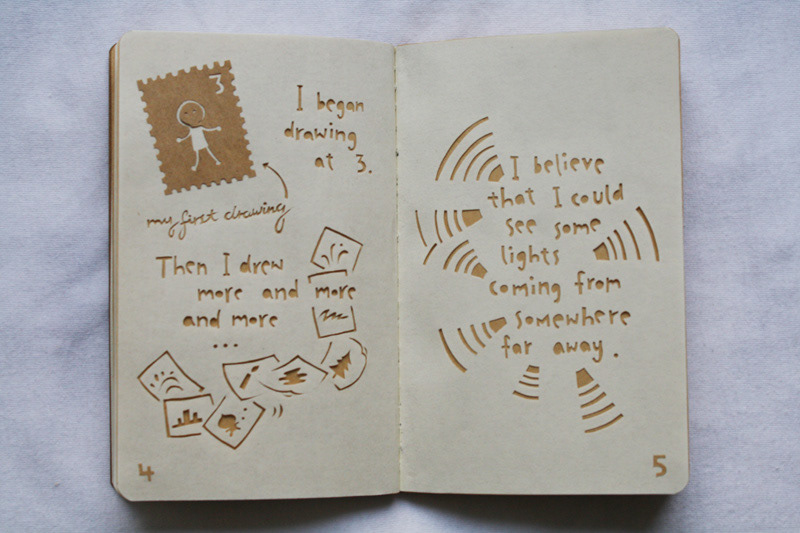 3
I began
drawing
at 3.
my first drawing
Then I drew
more and more
and more
...
4
I believe
that I could
see some
lights
coming from
somewhere
far away.
5